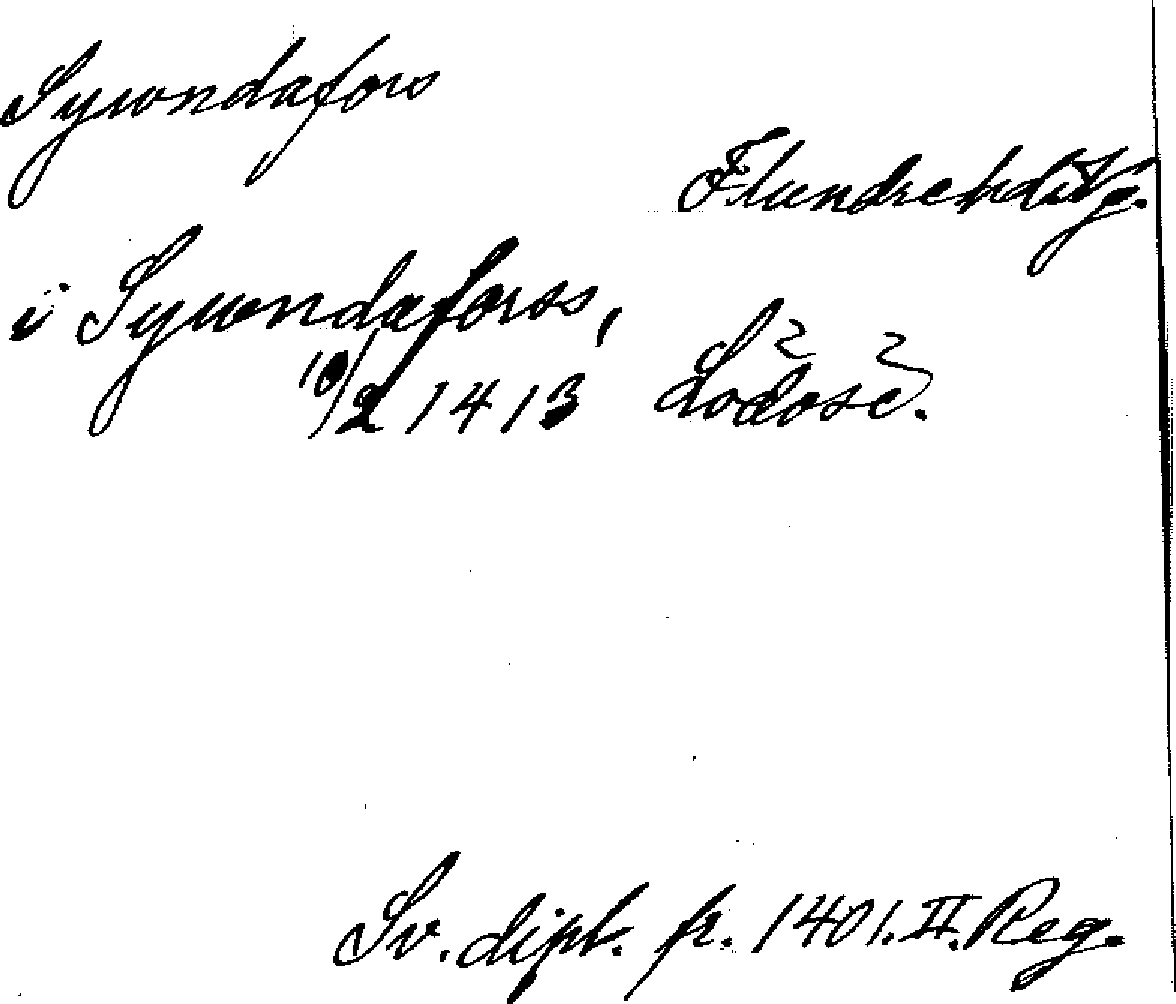 Sywndafors
Flundre hd Vg.
i Sywendaforss,
10/2 1413 Lodose.
Sv. dipl. fr. 1401. II. Reg.